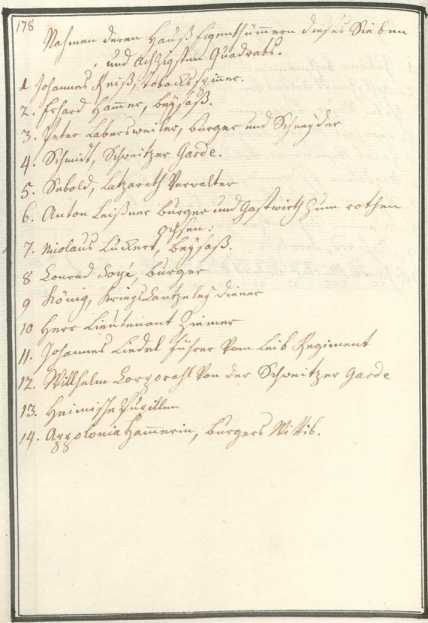 178
Nahmen deren Hauß Eigenthümmern dieses Sieben
und Achtzigsten Quadrats.
1. Johannes Reiß, tobackspinner.
2. Erhard Hammer, beysaß.
3. Peter Labersweiler, burger und Schneyder
4. Schmidt, Schweitzer Garde.
5. Sebold, Lazareth Verwalter
6. Anton Leißner burger und Gastwirth Zum rothen
Ochsen.
7. Nicolaus Lückert, beysaß.
8 Conrad burger
9 König, Kriegs Cantzeley diener
10 Herr Lieutenant Ziemer
11. Johannes Liedel führer vom Leib Regiment
12. Willhelm Corporahl von der Schweitzer Garde
13. Heimische Pupillen
14. Appolonia Hammerin, burgers Wittib.